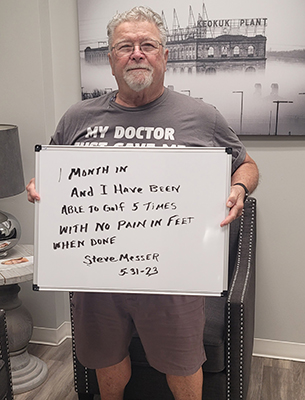 KEOKUK PLANT
MY DOCTOR
1 MONTH IN
AND I HAVE BEEN
ABLE TO GOLF 5 TIMES
WITH NO PAIN IN FEET
WHEN DONE
STEVE MESSER
5-31-23